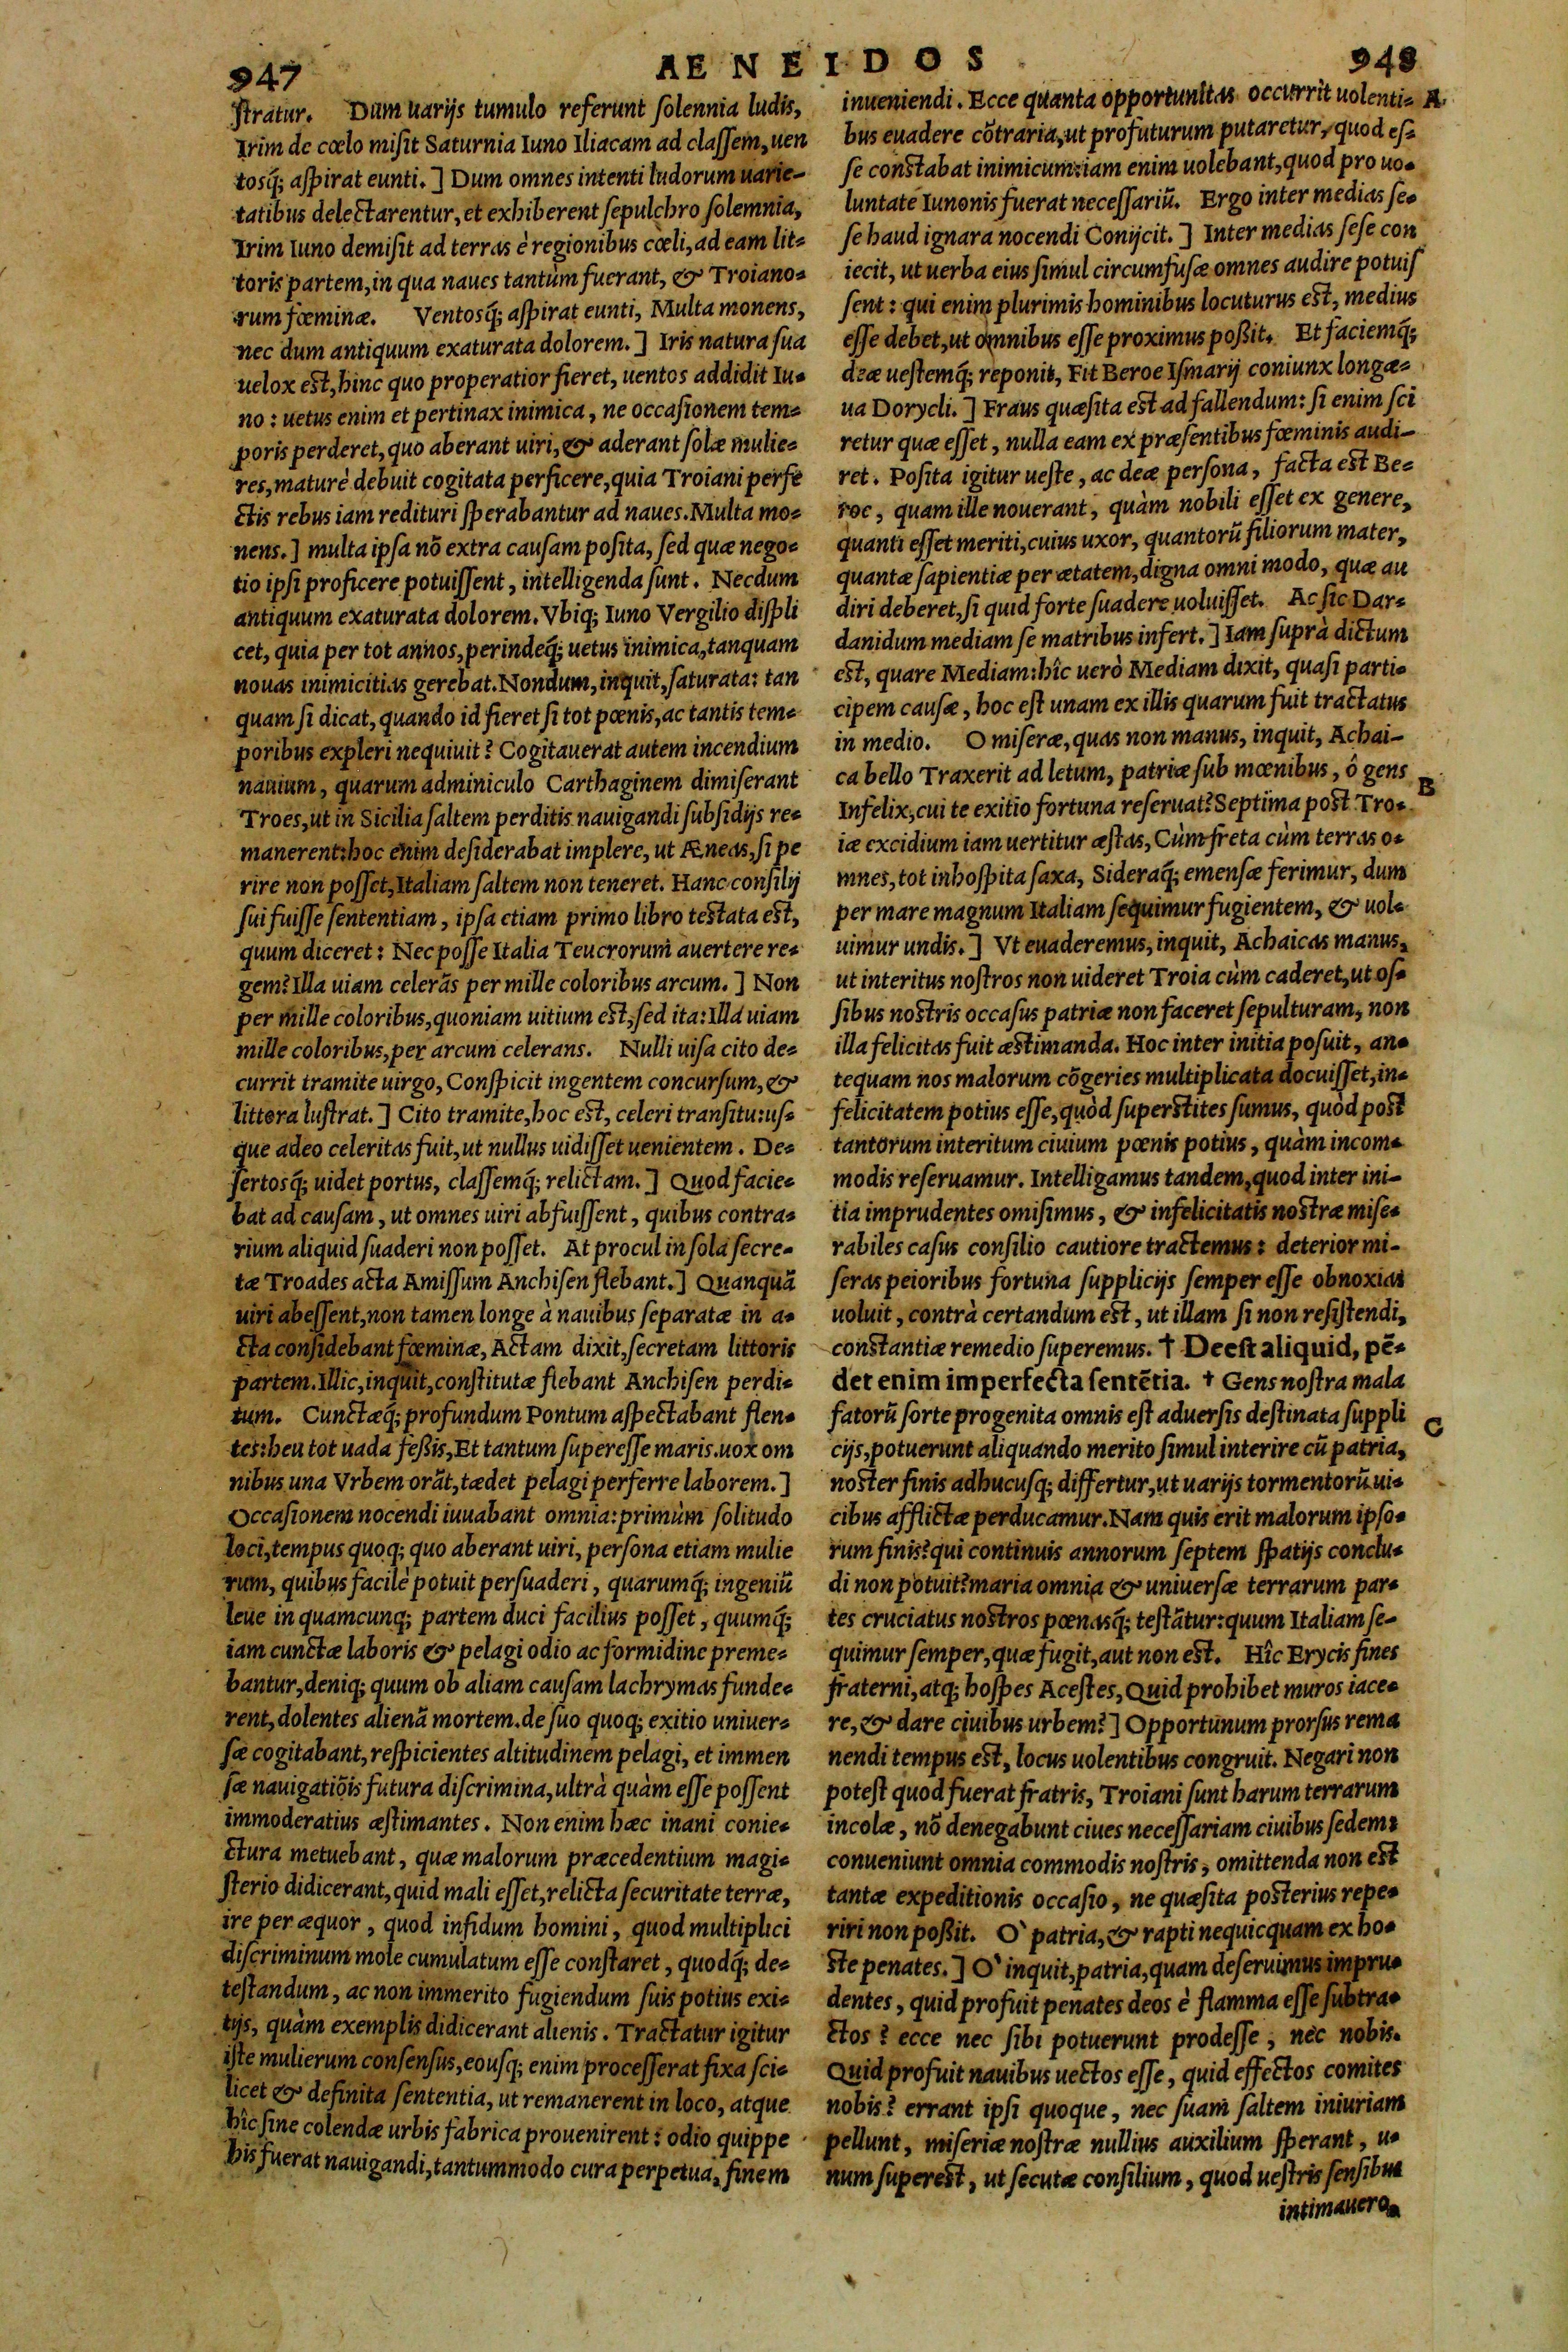 947
AENEIDOS
948
ſtratur. Dum uarijs tumulo referunt ſolennia ludis,
Irim de cœlo miſit Saturnia Iuno Iliacam ad claſſem, uen
tosq́; aſpirat eunti. ] Dum omnes intenti ludorum uarie-
tatibus delectarentur, et exhiberent ſepulchro ſolemnia,
Irim Iuno demiſit ad terras è regionibus cœli, ad eam lit-
toris partem, in qua naues tantùm fuerant, & Troiano-
rum fœminæ. Ventosq́; aſpirat eunti, Multa monens,
nec dum antiquum exaturata dolorem. ] Iris natura ſua
uelox est, hinc quo properatior fieret, uentos addidit Iu-
no : uetus enim et pertinax inimica, ne occaſionem tem-
poris perderet, quo aberant uiri, & aderant ſolæ mulie-
res, maturè debuit cogitata perficere, quia Troiani perfe
ctis rebus iam redituri ſperabantur ad naues. Multa mo-
nens. ] multa ipſa nõ extra cauſam poſita, ſed quæ nego-
tio ipſi proficere potuiſſent, intelligenda ſunt. Necdum
antiquum exaturata dolorem. Vbiq; Iuno Vergilio diſpli
cet, quia per tot annos, perindeq́; uetus inimica, tanquam
nouas inimicitias gerebat. Nondum, inquit, ſaturata: tan
quam ſi dicat, quando id fieret ſi tot pœnis, ac tantis tem-
poribus expleri nequiuit ? Cogitauerat autem incendium
nauium, quarum adminiculo Carthaginem dimiſerant
Troes, ut in Sicilia ſaltem perditis nauigandi ſubſidijs re-
manerent: hoc enim deſiderabat implere, ut Æneas, ſi pe
rire non poſſet, Italiam ſaltem non teneret. Hanc conſilij
ſui fuiſſe ſententiam, ipſa etiam primo libro testata est,
quum diceret : Nec poſſe Italia Teucrorum auertere re-
gem? Illa uiam celerãs per mille coloribus arcum. ] Non
per mille coloribus, quoniam uitium est, ſed ita: Illa uiam
mille coloribus, per arcum celerans. Nulli uiſa cito de-
currit tramite uirgo, Conſpicit ingentem concurſum, &
littora luſtrat. ] Cito tramite, hoc est, celeri tranſitu: uſ-
que adeo celeritas fuit, ut nullus uidiſſet uenientem. De-
ſertosq́; uidet portus, claſſemq́; relictam. ] Quod facie-
bat ad cauſam, ut omnes uiri abfuiſſent, quibus contra-
rium aliquid ſuaderi non poſſet. At procul in ſola ſecre-
tæ Troades acta Amiſſum Anchiſen flebant. ] Quanquã
uiri abeſſent, non tamen longe à nauibus ſeparatæ in a-
cta conſidebant fœminæ, Actam dixit, ſecretam littoris
partem. Illic, inquit, conſtitutæ flebant Anchiſen perdi-
tum. Cunctæq́; profundum Pontum aſpectabant flen-
tes: heu tot uada feßis, Et tantum ſupereſſe maris. uox om
nibus una Vrbem orãt, tædet pelagi perferre laborem. ]
Occaſionem nocendi iuuabant omnia: primùm ſolitudo
loci, tempus quoq; quo aberant uiri, perſona etiam mulie
rum, quibus facilè potuit perſuaderi, quarumq́; ingeniũ
leue in quamcunq; partem duci facilius poſſet, quumq́;
iam cunctæ laboris & pelagi odio ac formidine preme-
bantur, deniq; quum ob aliam cauſam lachrymas funde-
rent, dolentes alienã mortem. de ſuo quoq; exitio uniuer-
ſæ cogitabant, reſpicientes altitudinem pelagi, et immen
ſæ nauigatiõis futura diſcrimina, ultrà quàm eſſe poſſent
immoderatius æſtimantes. Non enim hæc inani conie-
ctura metuebant, quæ malorum præcedentium magi-
ſterio didicerant, quid mali eſſet, relicta ſecuritate terræ,
ire per æquor, quod infidum homini, quod multiplici
diſcriminum mole cumulatum eſſe conſtaret, quodq́; de-
teſtandum, ac non immerito fugiendum ſuis potius exi-
tijs, quàm exemplis didicerant alienis. Tractatur igitur
iſte mulierum conſenſus, eouſq; enim proceſſerat fixa ſci-
licet & definita ſententia, ut remanerent in loco, atque
hîc ſine colendæ urbis fabrica prouenirent : odio quippe
his fuerat nauigandi, tantummodo cura perpetua, finem
inueniendi. Ecce quanta opportunitas occurrit uolenti- A
bus euadere cõtraria, ut profuturum putaretur, quod eſ-
ſe constabat inimicum: iam enim uolebant, quod pro uo-
luntate Iunonis fuerat neceſſariũ. Ergo inter medias ſe-
ſe haud ignara nocendi Conijcit. ] Inter medias ſeſe con
iecit, ut uerba eius ſimul circumfuſæ omnes audire potuiſ
ſent : qui enim plurimis hominibus locuturus est, medius
eſſe debet, ut omnibus eſſe proximus poßit. Et faciemq́;
deæ ueſtemq́; reponit, Fit Beroe Iſmarij coniunx longæ-
ua Dorycli. ] Fraus quæſita est ad fallendum: ſi enim ſci
retur quæ eſſet, nulla eam ex præſentibus fœminis audi-
ret. Poſita igitur ueſte, ac deæ perſona, facta est Be-
roe, quam ille nouerant, quàm nobili eſſet ex genere,
quanti eſſet meriti, cuius uxor, quantorũ filiorum mater,
quantæ ſapientiæ per ætatem, digna omni modo, quæ au
diri deberet, ſi quid forte ſuadere uoluiſſet. Ac ſic Dar-
danidum mediam ſe matribus infert. ] Iam ſuprà dictum
est, quare Mediam: hîc uerò Mediam dixit, quaſi parti-
cipem cauſæ, hoc eſt unam ex illis quarum fuit tractatus
in medio. O miſeræ, quas non manus, inquit, Achai-
ca bello Traxerit ad letum, patriæ ſub mœnibus, ô gens
B
Infelix, cui te exitio fortuna reſeruat? Septima post Tro-
iæ excidium iam uertitur æſtas, Cùm freta cùm terras o-
mnes, tot inhoſpita ſaxa, Sideraq́; emenſæ ferimur, dum
per mare magnum Italiam ſequimur fugientem, & uol-
uimur undis. ] Vt euaderemus, inquit, Achaicas manus,
ut interitus noſtros non uideret Troia cùm caderet, ut oſ-
ſibus noſtris occaſus patriæ non faceret ſepulturam, non
illa felicitas fuit æstimanda. Hoc inter initia poſuit, an-
tequam nos malorum cõgeries multiplicata docuiſſet, in-
felicitatem potius eſſe, quòd ſuperſtites ſumus, quòd post
tantorum interitum ciuium pœnis potius, quàm incom-
modis reſeruamur. Intelligamus tandem, quod inter ini-
tia imprudentes omiſimus, & infelicitatis noſtræ miſe-
rabiles caſus conſilio cautiore tractemus : deterior mi-
ſeras peioribus fortuna ſupplicijs ſemper eſſe obnoxias
uoluit, contrà certandum est, ut illam ſi non reſiſtendi,
constantiæ remedio ſuperemus. † Deeſt aliquid, pē-
det enim imperfecta ſentētia. † Gens noſtra mala
fatorũ ſorte progenita omnis eſt aduerſis deſtinata ſuppli
C
cijs, potuerunt aliquando merito ſimul interire cũ patria,
noſter finis adhucuſq; differtur, ut uarijs tormentorũ ui-
cibus afflictæ perducamur. Nam quis erit malorum ipſo-
rum finis? qui continuis annorum ſeptem ſpatijs conclu-
di non potuit? maria omnia & uniuerſæ terrarum par-
tes cruciatus noſtros pœnasq́; teſtãtur: quum Italiam ſe-
quimur ſemper, quæ fugit, aut non est. Hîc Erycis fines
fraterni, atq; hoſpes Aceſtes, Quid prohibet muros iace-
re, & dare ciuibus urbem? ] Opportunum prorſus rema
nendi tempus est, locus uolentibus congruit. Negari non
poteſt quod fuerat fratris, Troiani ſunt harum terrarum
incolæ, nõ denegabunt ciues neceſſariam ciuibus ſedem:
conueniunt omnia commodis noſtris, omittenda non est
tantæ expeditionis occaſio, ne quæſita poſterius repe-
riri non poßit. O` patria, & rapti nequicquam ex ho-
ſte penates. ] O` inquit, patria, quam deſeruimus impru-
dentes, quid profuit penates deos è flamma eſſe ſubtra-
ctos ? ecce nec ſibi potuerunt prodeſſe, nec nobis.
Quid profuit nauibus uectos eſſe, quid effectos comites
nobis? errant ipſi quoque, nec ſuam ſaltem iniuriam
pellunt, miſeriæ noſtræ nullius auxilium ſperant, u-
num ſuperest, ut ſecutæ conſilium, quod ueſtris ſenſibus
intimauero,